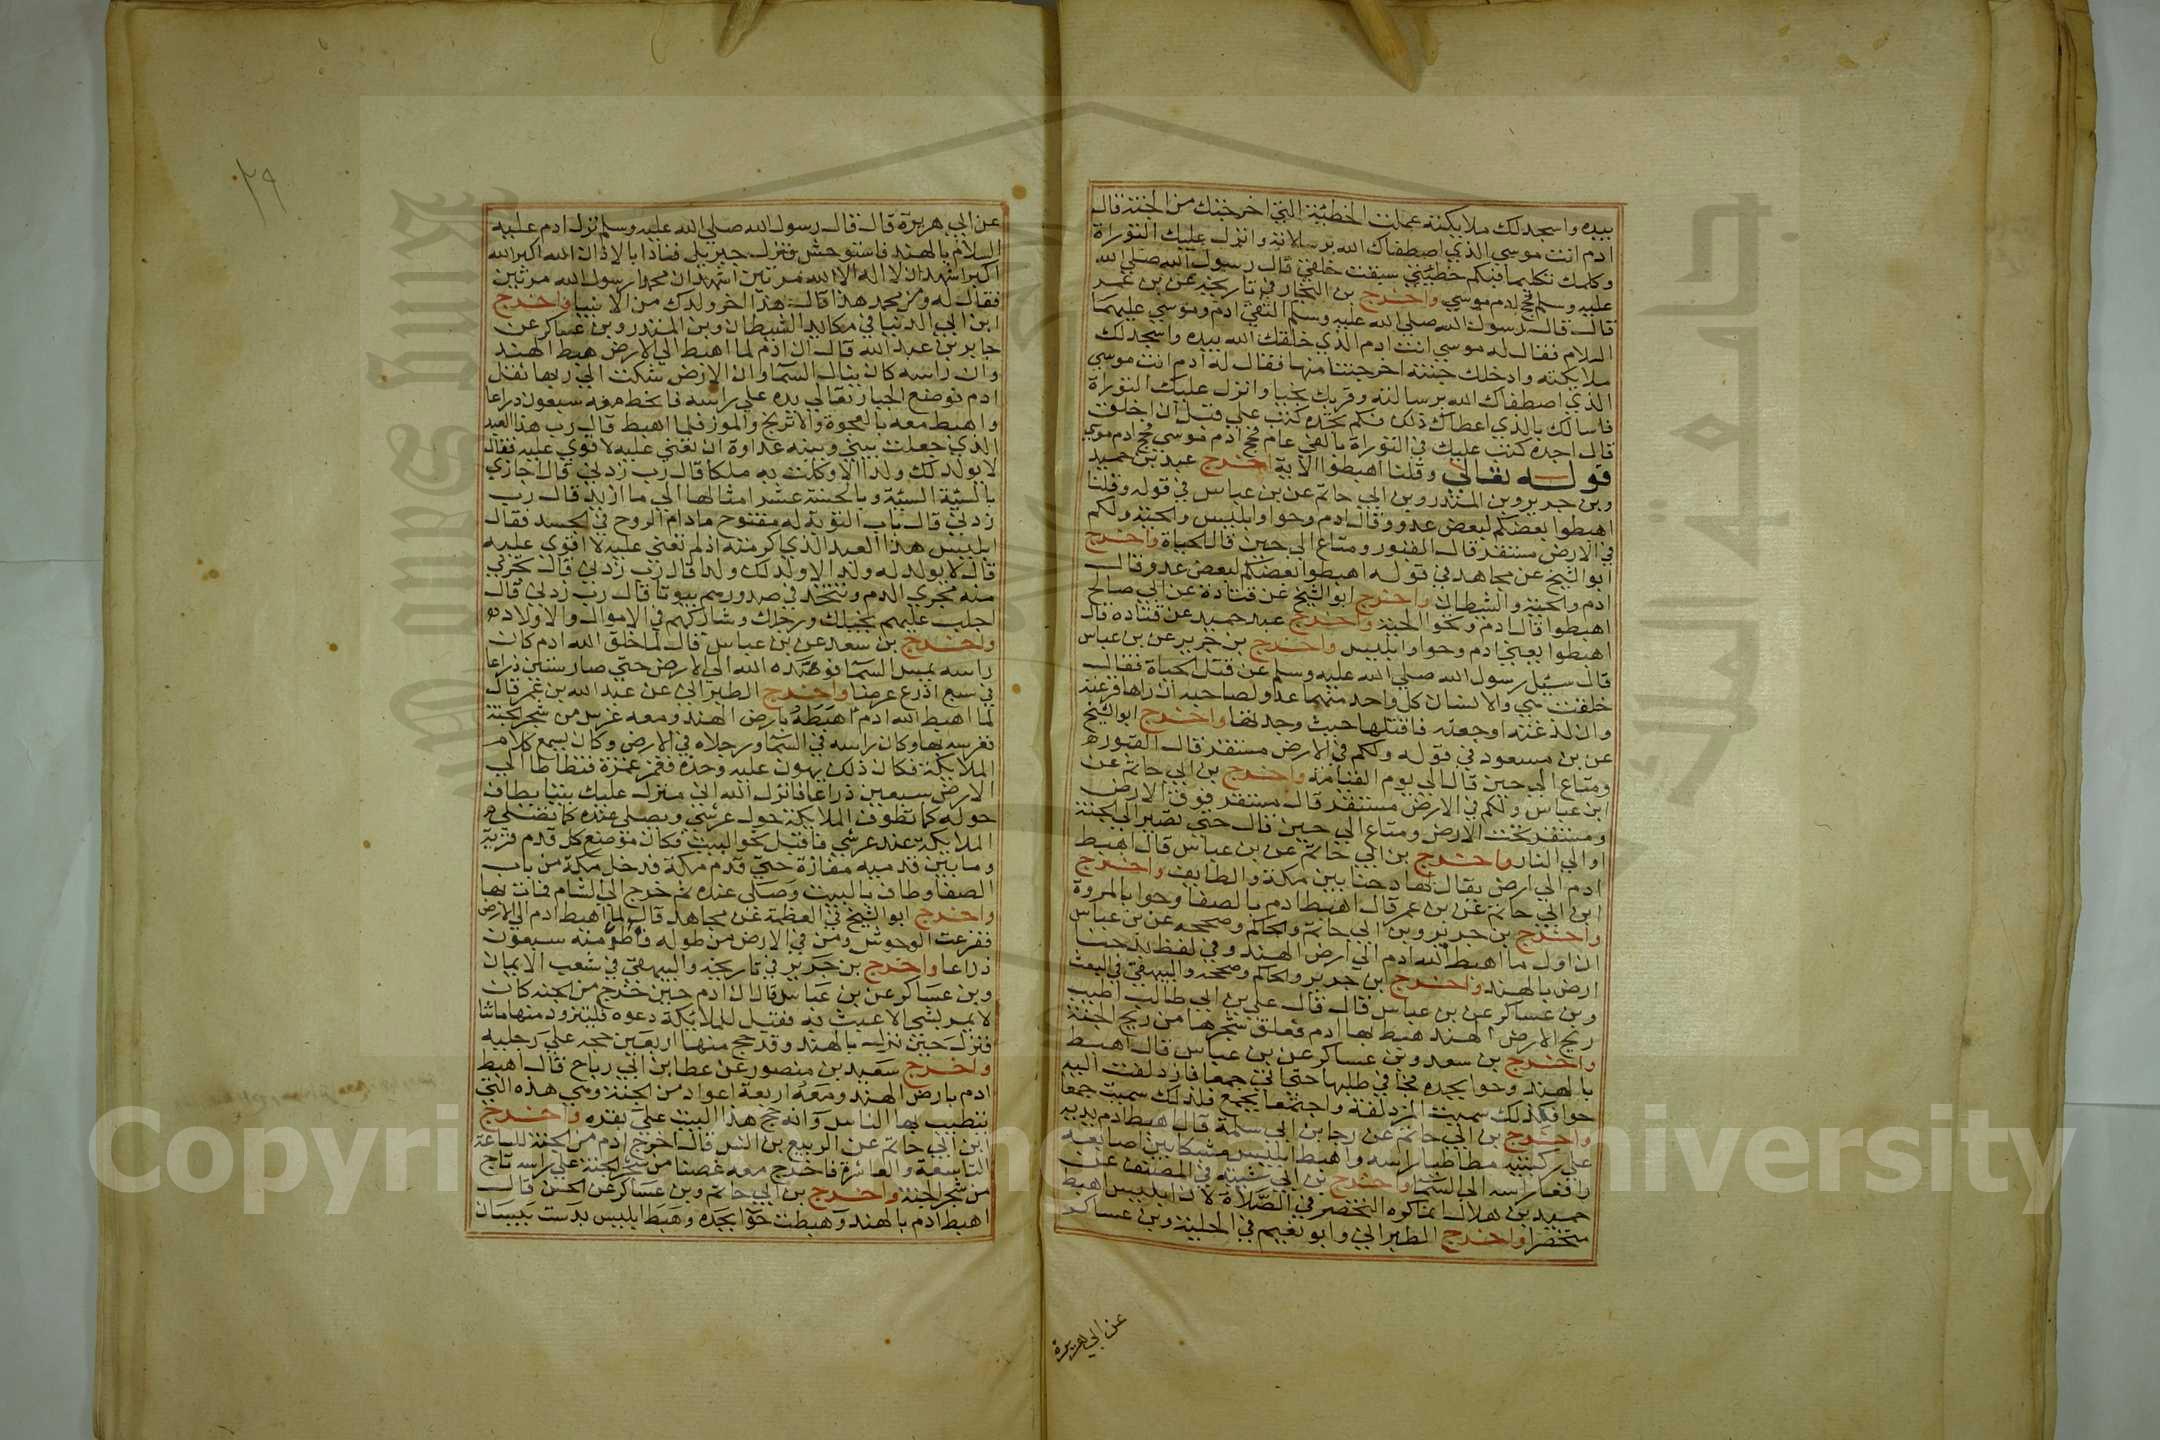 بيده واسجد لك ملايكته عملت الخطيئة التي اخرجتك من الجنة قال
ادم انت موسي الذي اصطفاك الله برسالاته وانزل عليك التوراة
وكلمك تكليما فبكم خطيئتي سبقت خلقي قال رسول الله صلي الله
عليه وسلم فحج ادم موسي واخرج بن النجار في تاريخه عن بن عمر
قال قال رسول الله صلي الله عليه وسلم التقي ادم وموسي عليهما
السلام فقال له موسي انت ادم الذي خلقك الله بيده واسجد لك
ملايكته وادخلك جنته اخرجتنا منها فقال له ادم انت موسي
الذي اصطفاك الله برسالته وقربك نجيا وانزل عليك التوراة
فاسالك بالذي اعطاك ذلك فبكم تجده كتب علي قبل ان اخلق
قال اجده كتب عليك في التوراة بالفي عام فحج ادم موسي فحج ادم موسي
قوله تعالي وقلنا اهبطوا الاية اخرج عبد بن حميد
وبن جرير وبن المنذر وبن ابي حاتم عن بن عباس في قوله وقلنا
اهبطوا بعضكم لبعض عدو وقال ادم وحوا وابليس والحية ولكم
في الارض مستقر قال القبور ومتاع الي حين قال الحياة واخرج
ابو الشيخ عن مجاهد في قوله اهبطوا بعضكم لبعض عدو قال
ادم والحية والشيطان واخرج ابو الشيخ عن قتادة عن ابي صالح
اهبطوا قال ادم وحوا والحية واخرج عبد حميد عن قتادة قال
اهبطوا يعني ادم وحوا وابليس واخرج بن جرير عن بن عباس
قال سيل رسول الله صلي الله عليه وسلم عن قتل الحياة فقال
خلقت هي والانسان كل واحد منهما عدو لصاحبه ان راها افزعته
وان لدغته اوجعته فاقتلها حيث وجدتها واخرج ابو الشيخ
عن بن مسعود في قوله ولكم في الارض مستقر قال القبور
ومتاع الي حين قال الي يوم القيامة واخرج بن ابي حاتم عن
ابن عباس ولكم في الارض مستقر قال مستقر فوق الارض
ومستقر تحت الارض ومتاع الي حين قال حتي تصير الي الجنة
او الي النار واخرج بن ابي حاتم عن بن عباس قال اهبط
ادم الي ارض يقال لها دحنا بين مكة والطايف واخرج
ابن ابي حاتم عن بن عمر قال اهبط ادم بالصفا وحوا بالمروة
واخرج بن جرير وبن ابي حاتم والحاكم وصححه عن بن عباس
ان اول ما اهبط الله ادم الي ارض الهند وفي لفظ بدحنا
ارض بالهند واخرج ابن جرير والحاكم وصححه والبيهقي في البعث
وبن عساكر عن بن عباس قال قال علي بن ابي طالب اطيب
ريح الارض الهند هبط بها ادم فعلق شجرها من ريح الجنة
واخرج بن سعد وبن عساكر عن بن عباس قال اهبط
بالهند وحوا بجده فجا في طلبها حتي اتي جمعا فازدلفت اليه
حوا فلذلك سميت المزدلفة واجتمعا بجمع فلذلك سميت جمعا
واخرج بن ابي حاتم عن رجا بن ابي سلمة قال اهبط ادم يديه
علي ركبتيه مطاطيا راسه واهبط ابليس مشبكا بين اصابعه
رافعا راسه الي السما واخرج بن ابي شيبة في المصنف عن
حميد بن هلال انما كره التخصر في الصلاة لان ابليس اهبط
متخصرا واخرج الطبراني وابو نعيم في الحلية وبن عساكر
عن ابي هريرة
٢٩
عن ابي هريرة قال قال رسول الله صلي الله عليه وسلم نزل ادم عليه
السلام بالهند فاستوحش فنزل جبريل فنادا بالاذان الله اكبر الله
اكبر اشهد ان لا اله الا الله مرتين اشهد ان محمدا رسول الله مرتين
فقال له ومن محمد هذا قال هذا اخر ولدك من الانبيا واخرج
ابن ابي الدنيا في مكايد الشيطان وبن المنذر وبن عساكر عن
جابر بن عبد الله قال ان ادم لما اهبط الي الارض هبط الهند
وان راسه كان ينال السما وان الارض شكت الي ربها ثقل
ادم فوضع الجبار تعالي يده علي راسه فانحط منه سبعون ذراعا
واهبط معه بالعجوة والاترنج والموز فلما اهبط قال رب هذا العبد
الذي جعلت بيني وبينه عداوة ان لم تعني عليه لا اقوي عليه فقال
لا يولد لك ولدا الا وكلت به ملكا قال رب زدني قال اجازي
بالسيئة السيئة وبالحسنة عشر امثالها الي ما ازيد قال رب
زدني قال باب التوبة له مفتوح مادام الروح في الجسد فقال
ابليس هذا العبد الذي اكرمته ان لم تعني عليه لا اقوي عليه
قال لا يولد له ولد الا ولد لك ولد قال رب زدني قال تجري
منه مجري الدم وتتخذ في صدورهم بيوتا قال رب زدني قال
اجلب عليهم بخيلك ورجلك وشاركهم في الاموال والاولاد
واخرج بن سعد عن بن عباس قال لما خلق الله ادم كان
راسه يمس السما فوطده الله الي الارض حتي صار ستين ذراعا
في سبع اذرع عرضا واخرج الطبراني عن عبد الله بن عمر قال
لما اهبط الله ادم اهبطه بارض الهند ومعه غرس من شجر الجنة
فغرسه بها وكان راسه في السما ورجلاه في الارض وكان يسمع كلام
الملايكة فكان ذلك يهون عليه وحدته فغمز غمزة فتطاطا الي
الارض سبعين ذراعا فانزل الله اني منزل عليك بيتا يطاف
حوله كما تطوف الملايكة حول عرشي ويصلي عنده كما تصلي
الملايكة عند عرشي فاقبل نحو البيت فكان موضع كل قدم قرية
وما بين قدميه مفازة حتي قدم مكة فدخل مكة من باب
الصفا وطاف بالبيت وصلي عنده ثم خرج الي الشام فمات بها
واخرج ابو الشيخ في العظمة عن مجاهد قال لما اهبط ادم الي الارض
ففزعت الوحوش ومن في الارض من طوله فاطر منه سبعون
ذراعا واخرج بن جرير في تاريخه والبيهقي في شعب الايمان
وبن عساكر عن بن عباس قال ان ادم حين خرج من الجنة كان
لا يمر بشي الا عبث به فقيل للملايكة دعوه فليتزود منها ما شا
فنزل حين نزل بالهند وقد حج منها اربعين حجة علي رجليه
واخرج سعيد بن منصور عن عطا بن ابي رباح قال اهبط
ادم بارض الهند ومعه اربعة اعواد من الجنة وهي هذه التي
تتطيب بها الناس وانه حج هذا البيت علي بقره واخرج
ابن ابي حاتم عن الربيع بن انس قال اخرج ادم من الجنة للساعة
التاسعة والعاشرة فاخرج معه غصنا من شجر الجنة علي راسه تاج
من شجر الجنة واخرج بن ابي حاتم وبن عساكر عن الحسن قال
اهبط ادم بالهند وهبطت حوا بجده وهبط ابليس بدست بيسان
Copyright © King Saud University